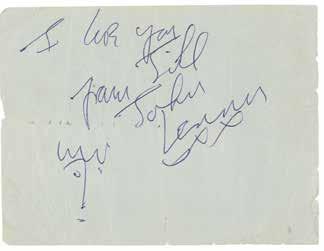 I you
Jill
from John
Lennon
xx